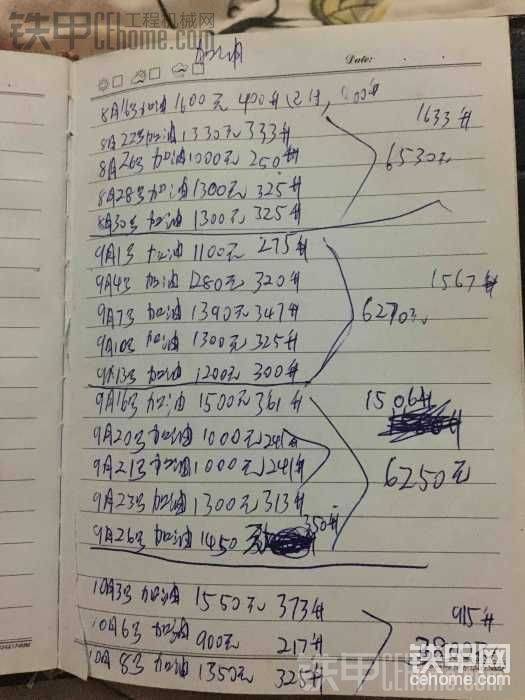 铁甲 工程机械网
CEhome.com
加油
Date:
8月16号加油 1600元 400升 已付
1633升
8月22号加油 1330元 333升
8月26号加油 1000元 250升
6530元
8月28号加油 1300元 325升
8月30号 加油 1300元 325升
9月1号 加油 1100元 275升
9月4号 加油 1280元 320升
1567升
9月7号 加油 1390元 347升
6270元
9月10号 加油 1300元 325升
9月13号 加油 1200元 300升
9月16号 加油 1500元 361升
1506升
9月20号 加油 1000元 241升
9月21号 加油 1000元 241升
6250元
9月23号 加油 1300元 313升
9月26号 加油 1450元 350升
10月3号 加油 1550元 373升
915升
10月6号 加油 900元 217升
3800元
10月8号 加油 1350元 325升
铁甲网
CEhome.com